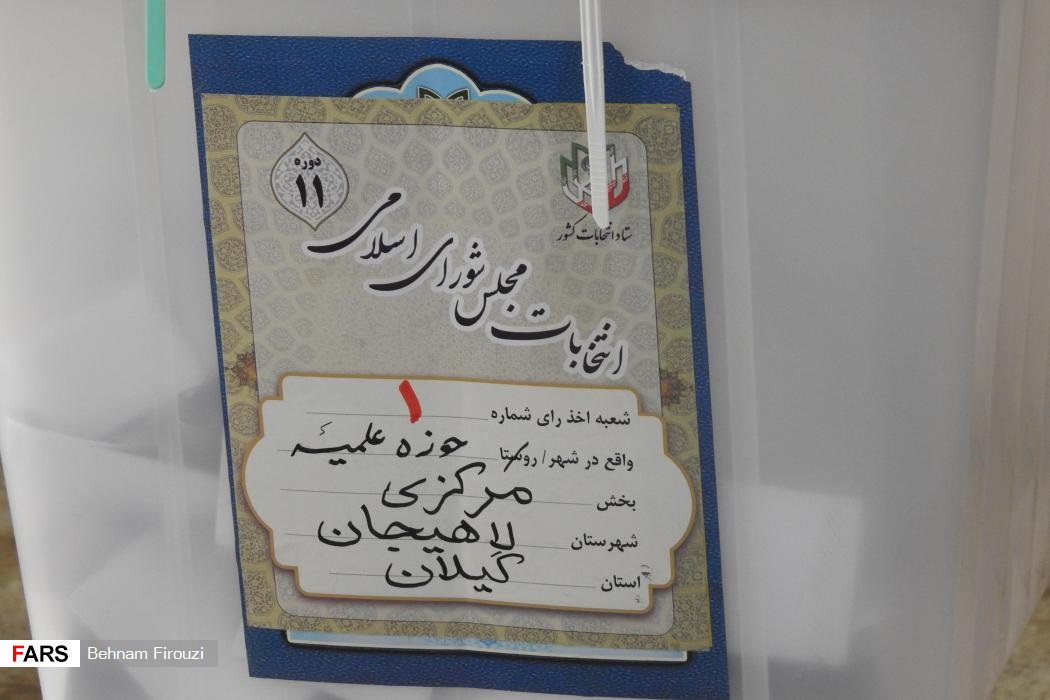 دوره
۱۱
ستاد انتخابات کشور
انتخابات مجلس شورای اسلامی
شعبه اخذ رای شماره ۱
واقع در شهر/ روستا حوزه علمیهٔ
بخش مرکزی
شهرستان لاهیجان
استان گیلان
FARS Behnam Firouzi